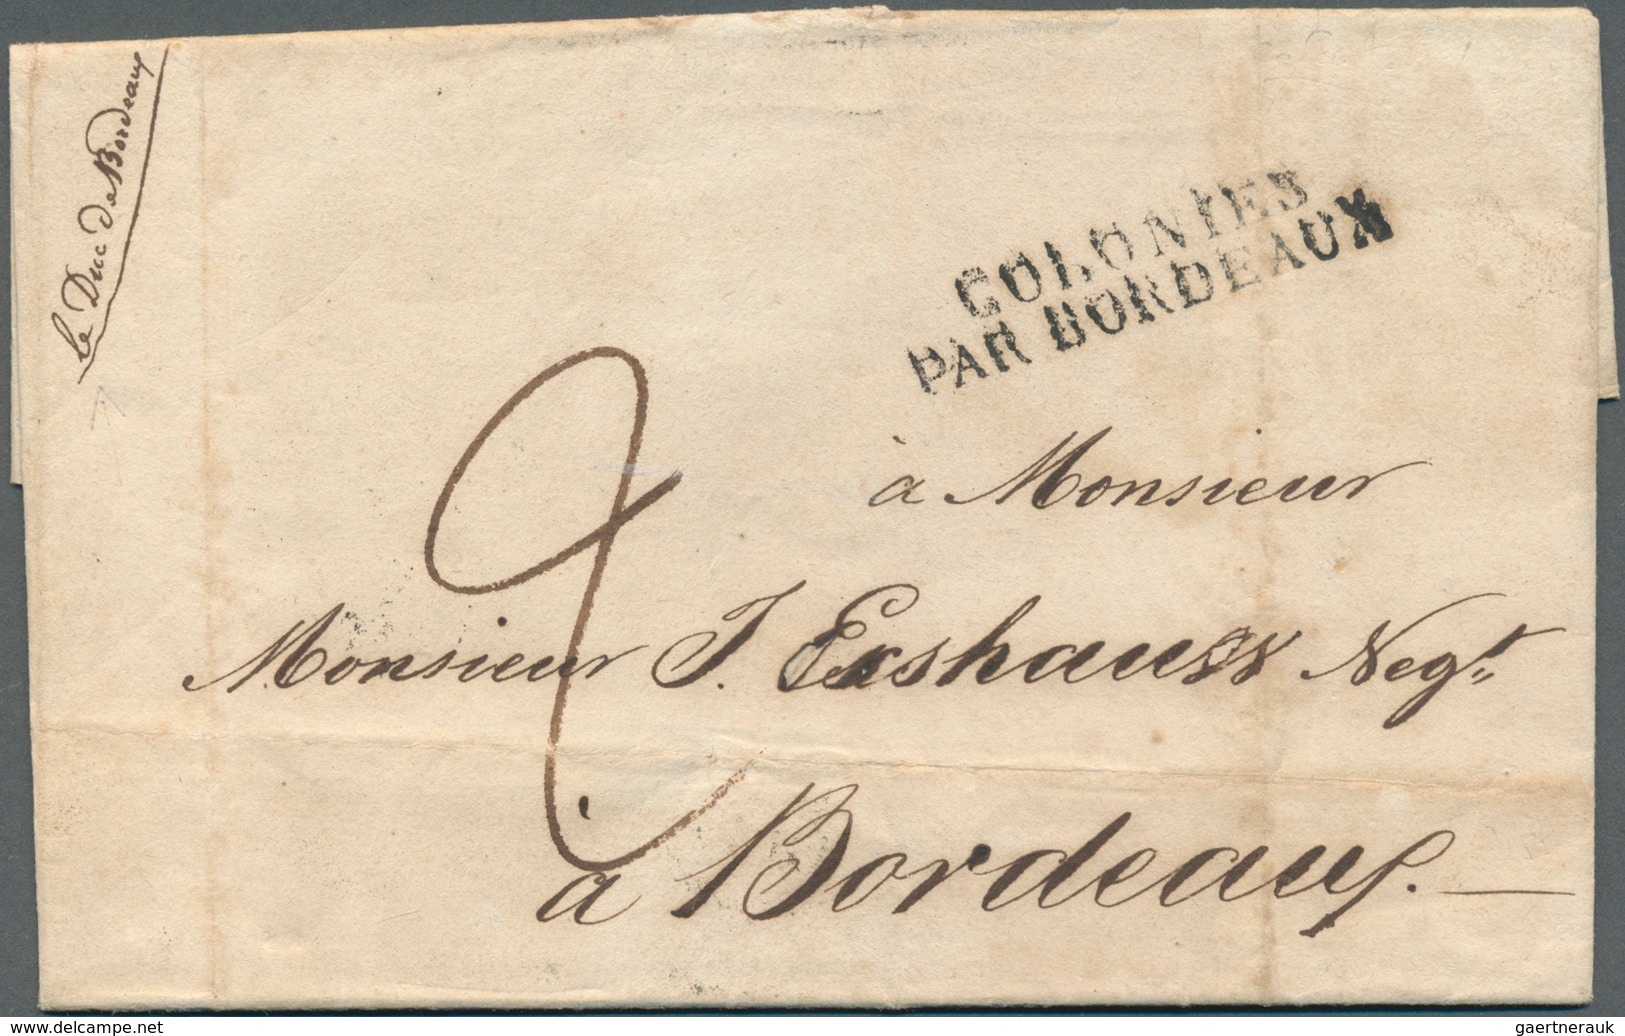 le Duc de Bordeaux
COLONIES
PAR BORDEAUX
2
à Monsieur
Monsieur J. Exshauss Negt.
à Bordeaux.
www.delcampe.net
gaertnerauk